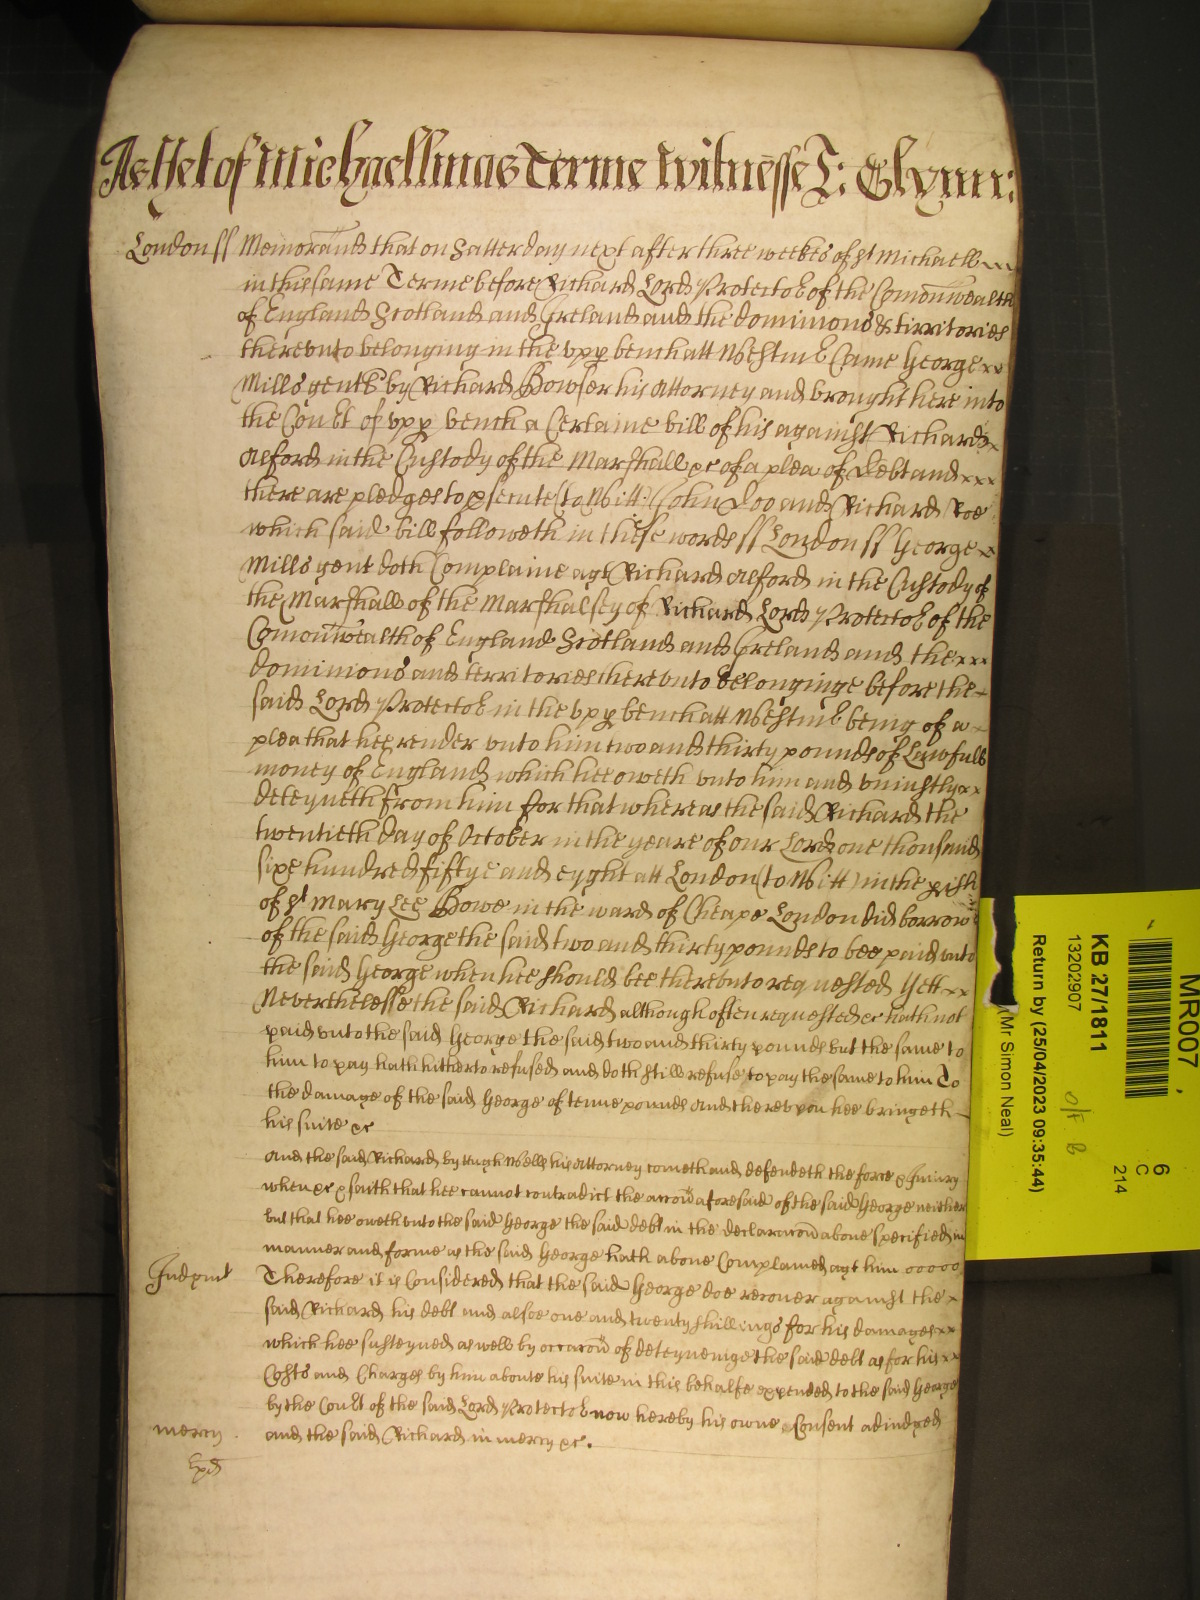 As Yet of Michaellmas Terme Witnesse J: Glynn:
London ss Memorand that on Satterday next after three weekes of St Michaell
in this same Terme before Richard Lord Protector of the Comonwealth
of England Scotland and Ireland and the dominions & tirritories
therevnto belonging in the vpp bench att Westmr Came George
Mills gent by Richard Bowser his Attorney and brought here into
the Court of vpp bench a Certaine bill of his against Richard
Alford in the Custody of the Marshall &c of a plea of Debt and
there are pledges to psecute (to Witt) John Doo and Richard Roe
which said bill followeth in these words ss London ss George
Mills gent doth Complaine agt Richard Alford in the Custody of
the Marshall of the Marshalsey of Richard Lord Protector of the
Comonwealth of England Scotland and Ireland and the
dominions and territories therevnto belonginge before the
said Lord Protector in the vpp bench att Westmr being of a
plea that hee render vnto him two and thirty pounds of Lawfull
money of England which hee oweth vnto him and vniustly
deteyneth from him for that whereas the said Richard the
twentieth day of October in the yeare of our Lord one thousand
sixe hundred fiftye and eyght att London (to Witt) in the pish
of St Mary Lee Bowe in the ward of Cheape London did borrow
of the said George the said two and thirty pounds to bee paid vnto
the said George when hee should bee therevnto requested Yett
Neverthelesse the said Richard although often requested &c hath not
paid vnto the said George the said two and thirty pounds but the same to
him to pay hath hitherto refused and doth still refuse to pay the same to him To
the damage of the said George of tenne pounds And therevpon hee bringeth
his suite &c
And the said Richard by Hugh Wells his Attorney cometh and defendeth the force & Iniury
when &c & saith that hee cannot contradict the accon aforesaid of the said George neither
but that hee oweth vnto the said George the said debt in the declaracon aboue specified in
manner and forme as the said George hath aboue Complained agt him
Judgmt Therefore it is Considered that the said George doe recouer against the
said Richard his debt and alsoe one and twenty shillings for his damages
which hee susteyned as well by occacon of deteyneinge the said debt as for his
Costs and Charges by him aboute his suite in this behalfe expended to the said George
by the Court of the said Lord Protector now hereby his owne Consent adiudged
mercy and the said Richard in mercy &c.
MR007
6
C
214
KB 27/1811
13202907
O/F B
Return by (25/04/2023 09:35:44)
(Mr Simon Neal)